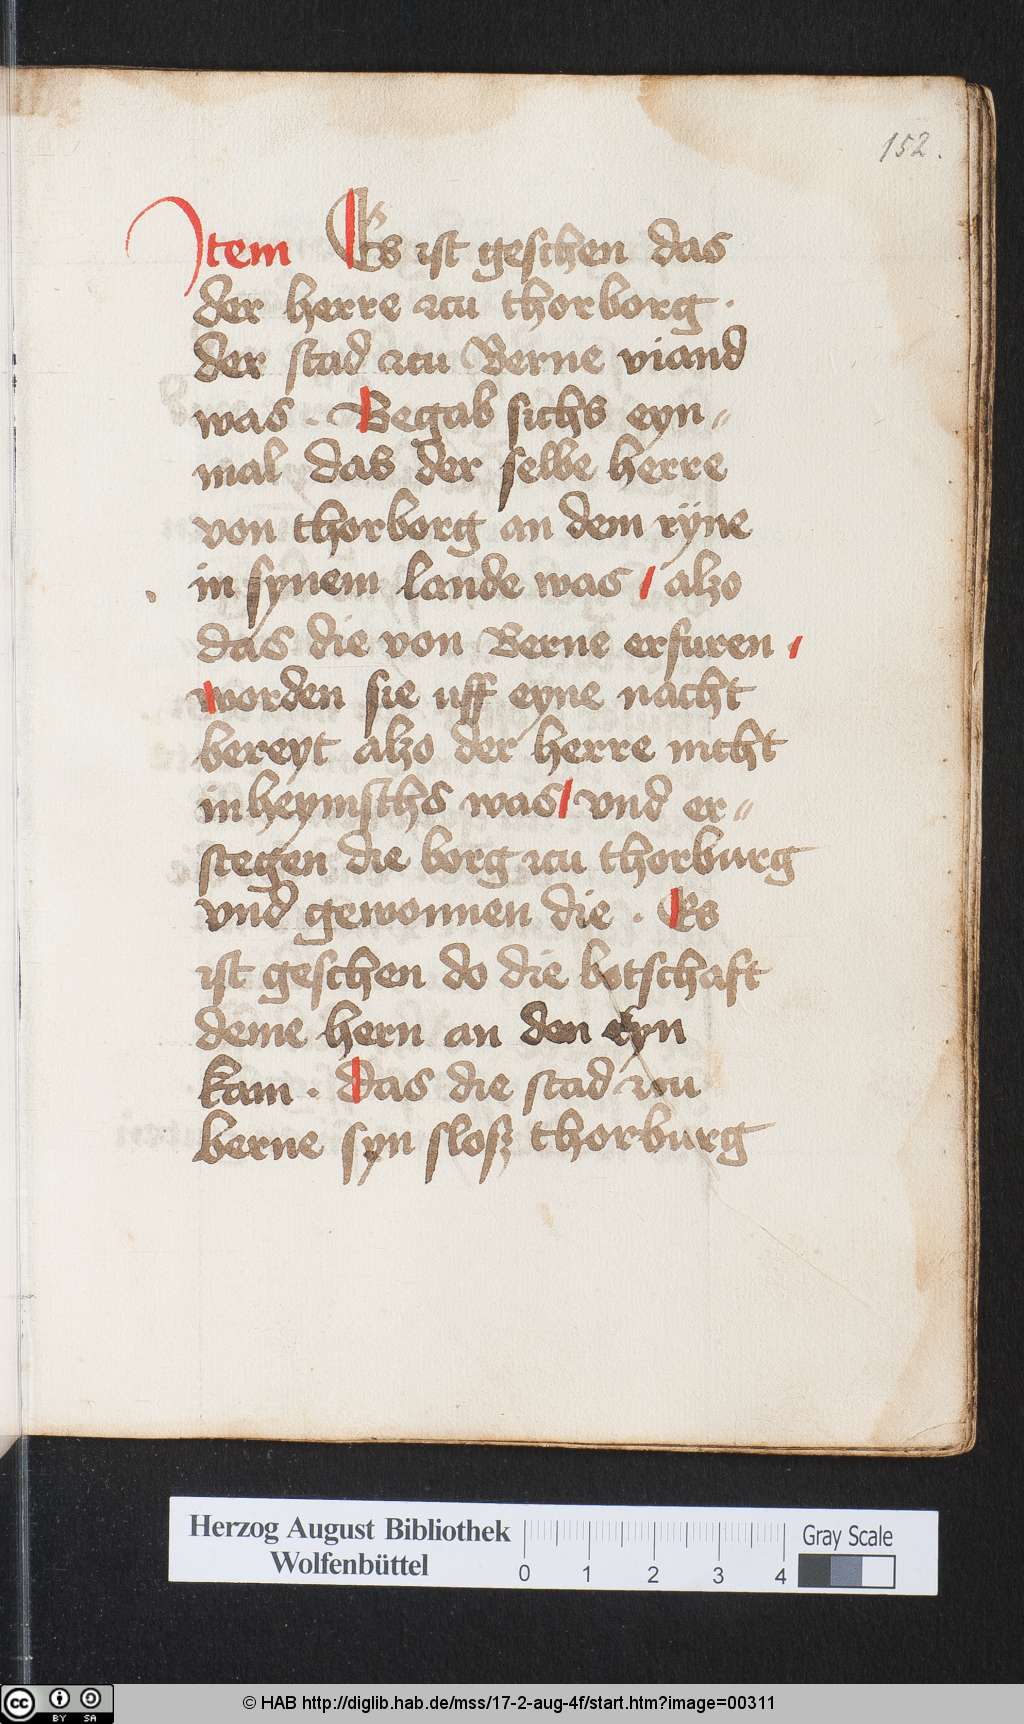 152.
Item Es ist geschen das
der herre zcu thorborg ·
der stad zcu Berne viand
was · Begab sichs eyn„
mal das der selbe herre
von thorborg an dem rÿne
in synem lande was / alzo
das die von Berne erfuren /
worden sie uff eyne nacht
bereyt alzo der herre nicht
inheymschs was / vnd er„
stegen die borg zcu thorburg
vnd gewonnen die · Es
ist geschen do die botschaft
deme hern an den Ryn
kam · Das die stad zcu
berne syn sloß thorburg
Herzog August Bibliothek
Wolfenbüttel
0 1 2 3 4
Gray Scale
cc BY SA
© HAB http://diglib.hab.de/mss/17-2-aug-4f/start.htm?image=00311